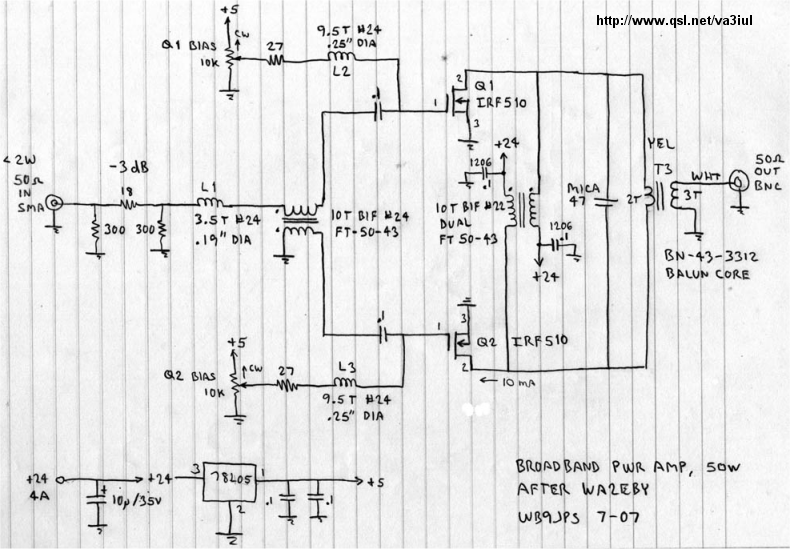 http://www.qsl.net/va3iul
+5
9.5T #24
.25" DIA
Q1 BIAS
10K
CW
27
L2
.1
2
1
Q1
IRF510
3
<2W
50Ω
IN
SMA
-3dB
18
300
300
L1
3.5T #24
.19" DIA
10T BIF #24
FT-50-43
1206
.1
+24
10T BIF #22
DUAL
FT50-43
1206
.1
+24
MICA
47
YEL
T3
2T
3T
WHT
50Ω
OUT
BNC
BN-43-3312
BALUN CORE
+5
Q2 BIAS
10K
CW
27
L3
9.5T #24
.25" DIA
.1
3
1
2
Q2
IRF510
← 10mA
+24
4A
+
10µ/35V
+24
3
78L05
1
2
.1
.1
+5
BROADBAND PWR AMP, 50W
AFTER WA2EBY
WB9JPS 7-07